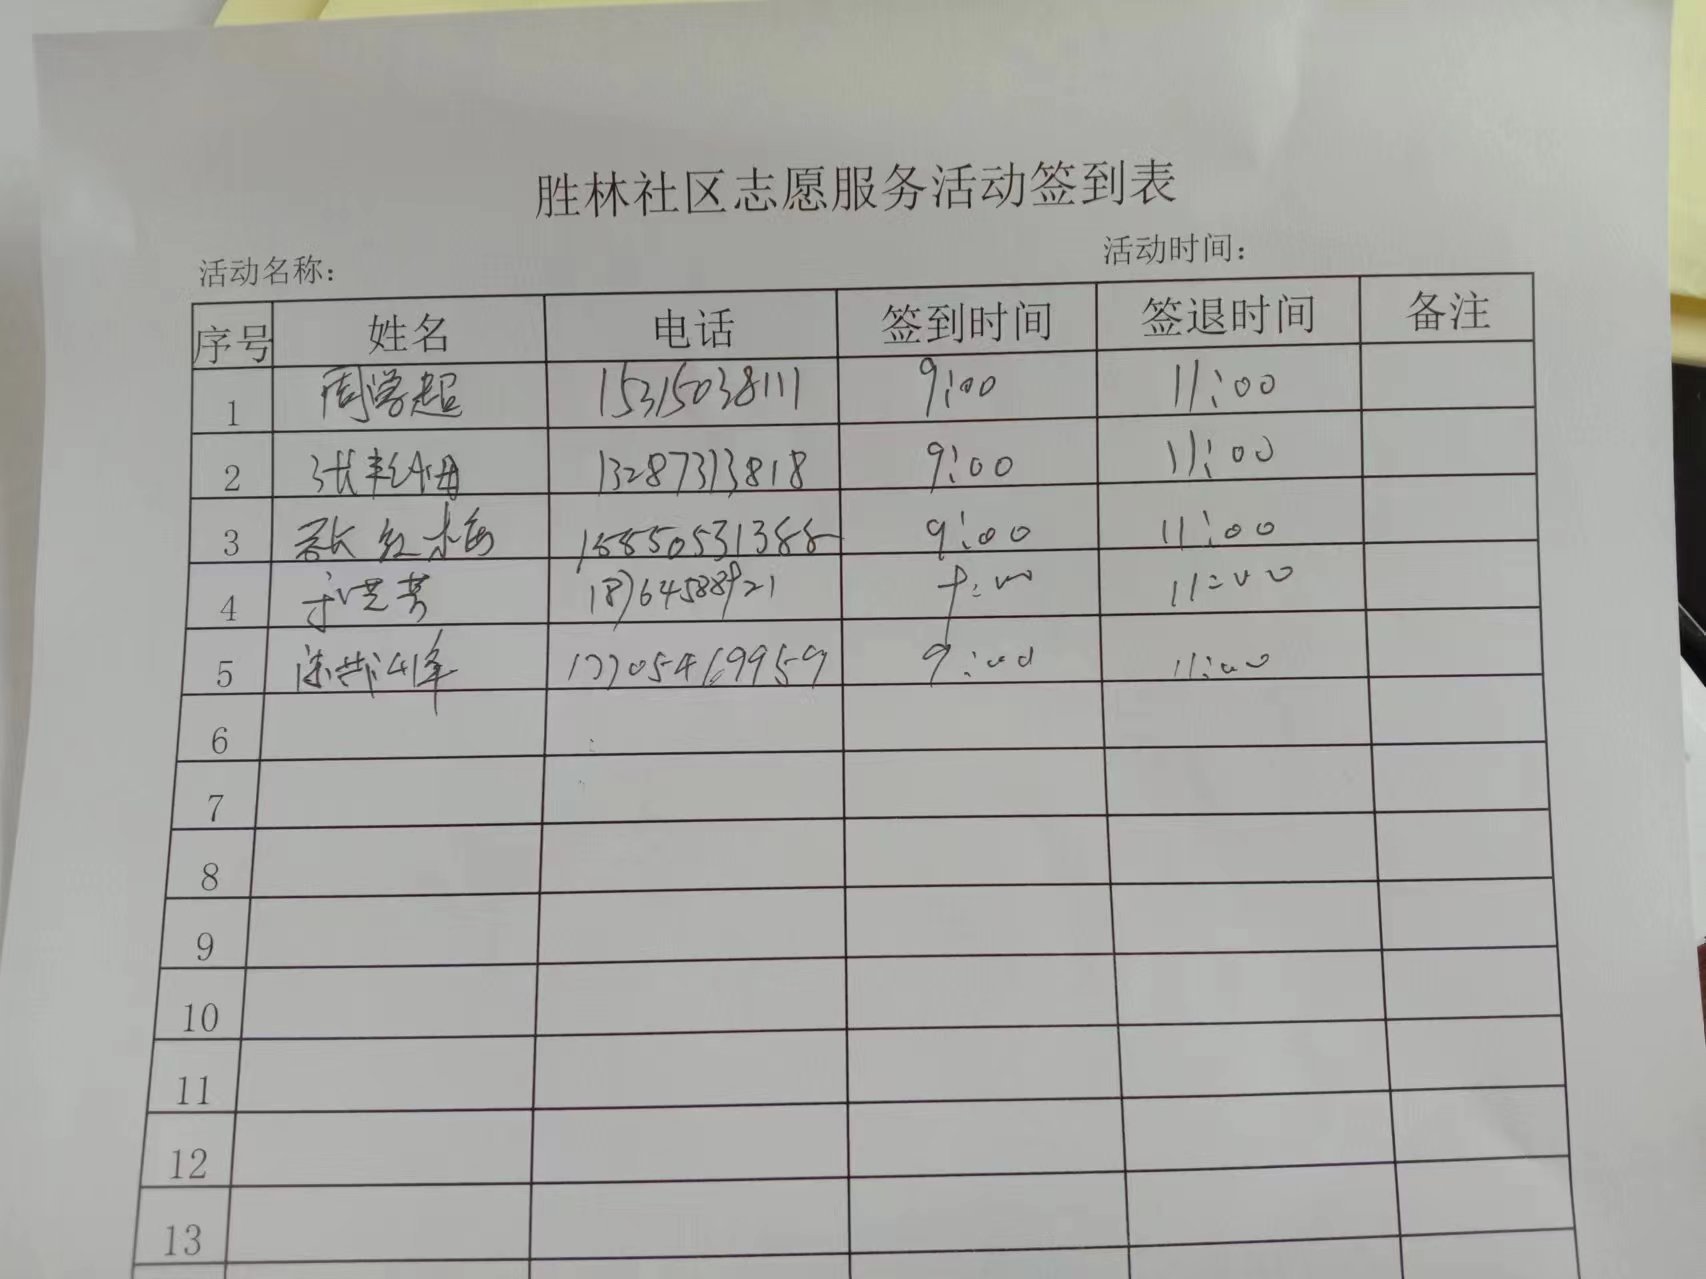 胜林社区志愿服务活动签到表
活动名称： 活动时间：
序号 姓名 电话 签到时间 签退时间 备注
1 周学超 15315038111 9:00 11:00
2 张 13287313818 9:00 11:00
3 张红梅 18850531388 9:00 11:00
4 18764588921 9:00 11:00
5 17705469959 9:00 11:00
6
7
8
9
10
11
12
13